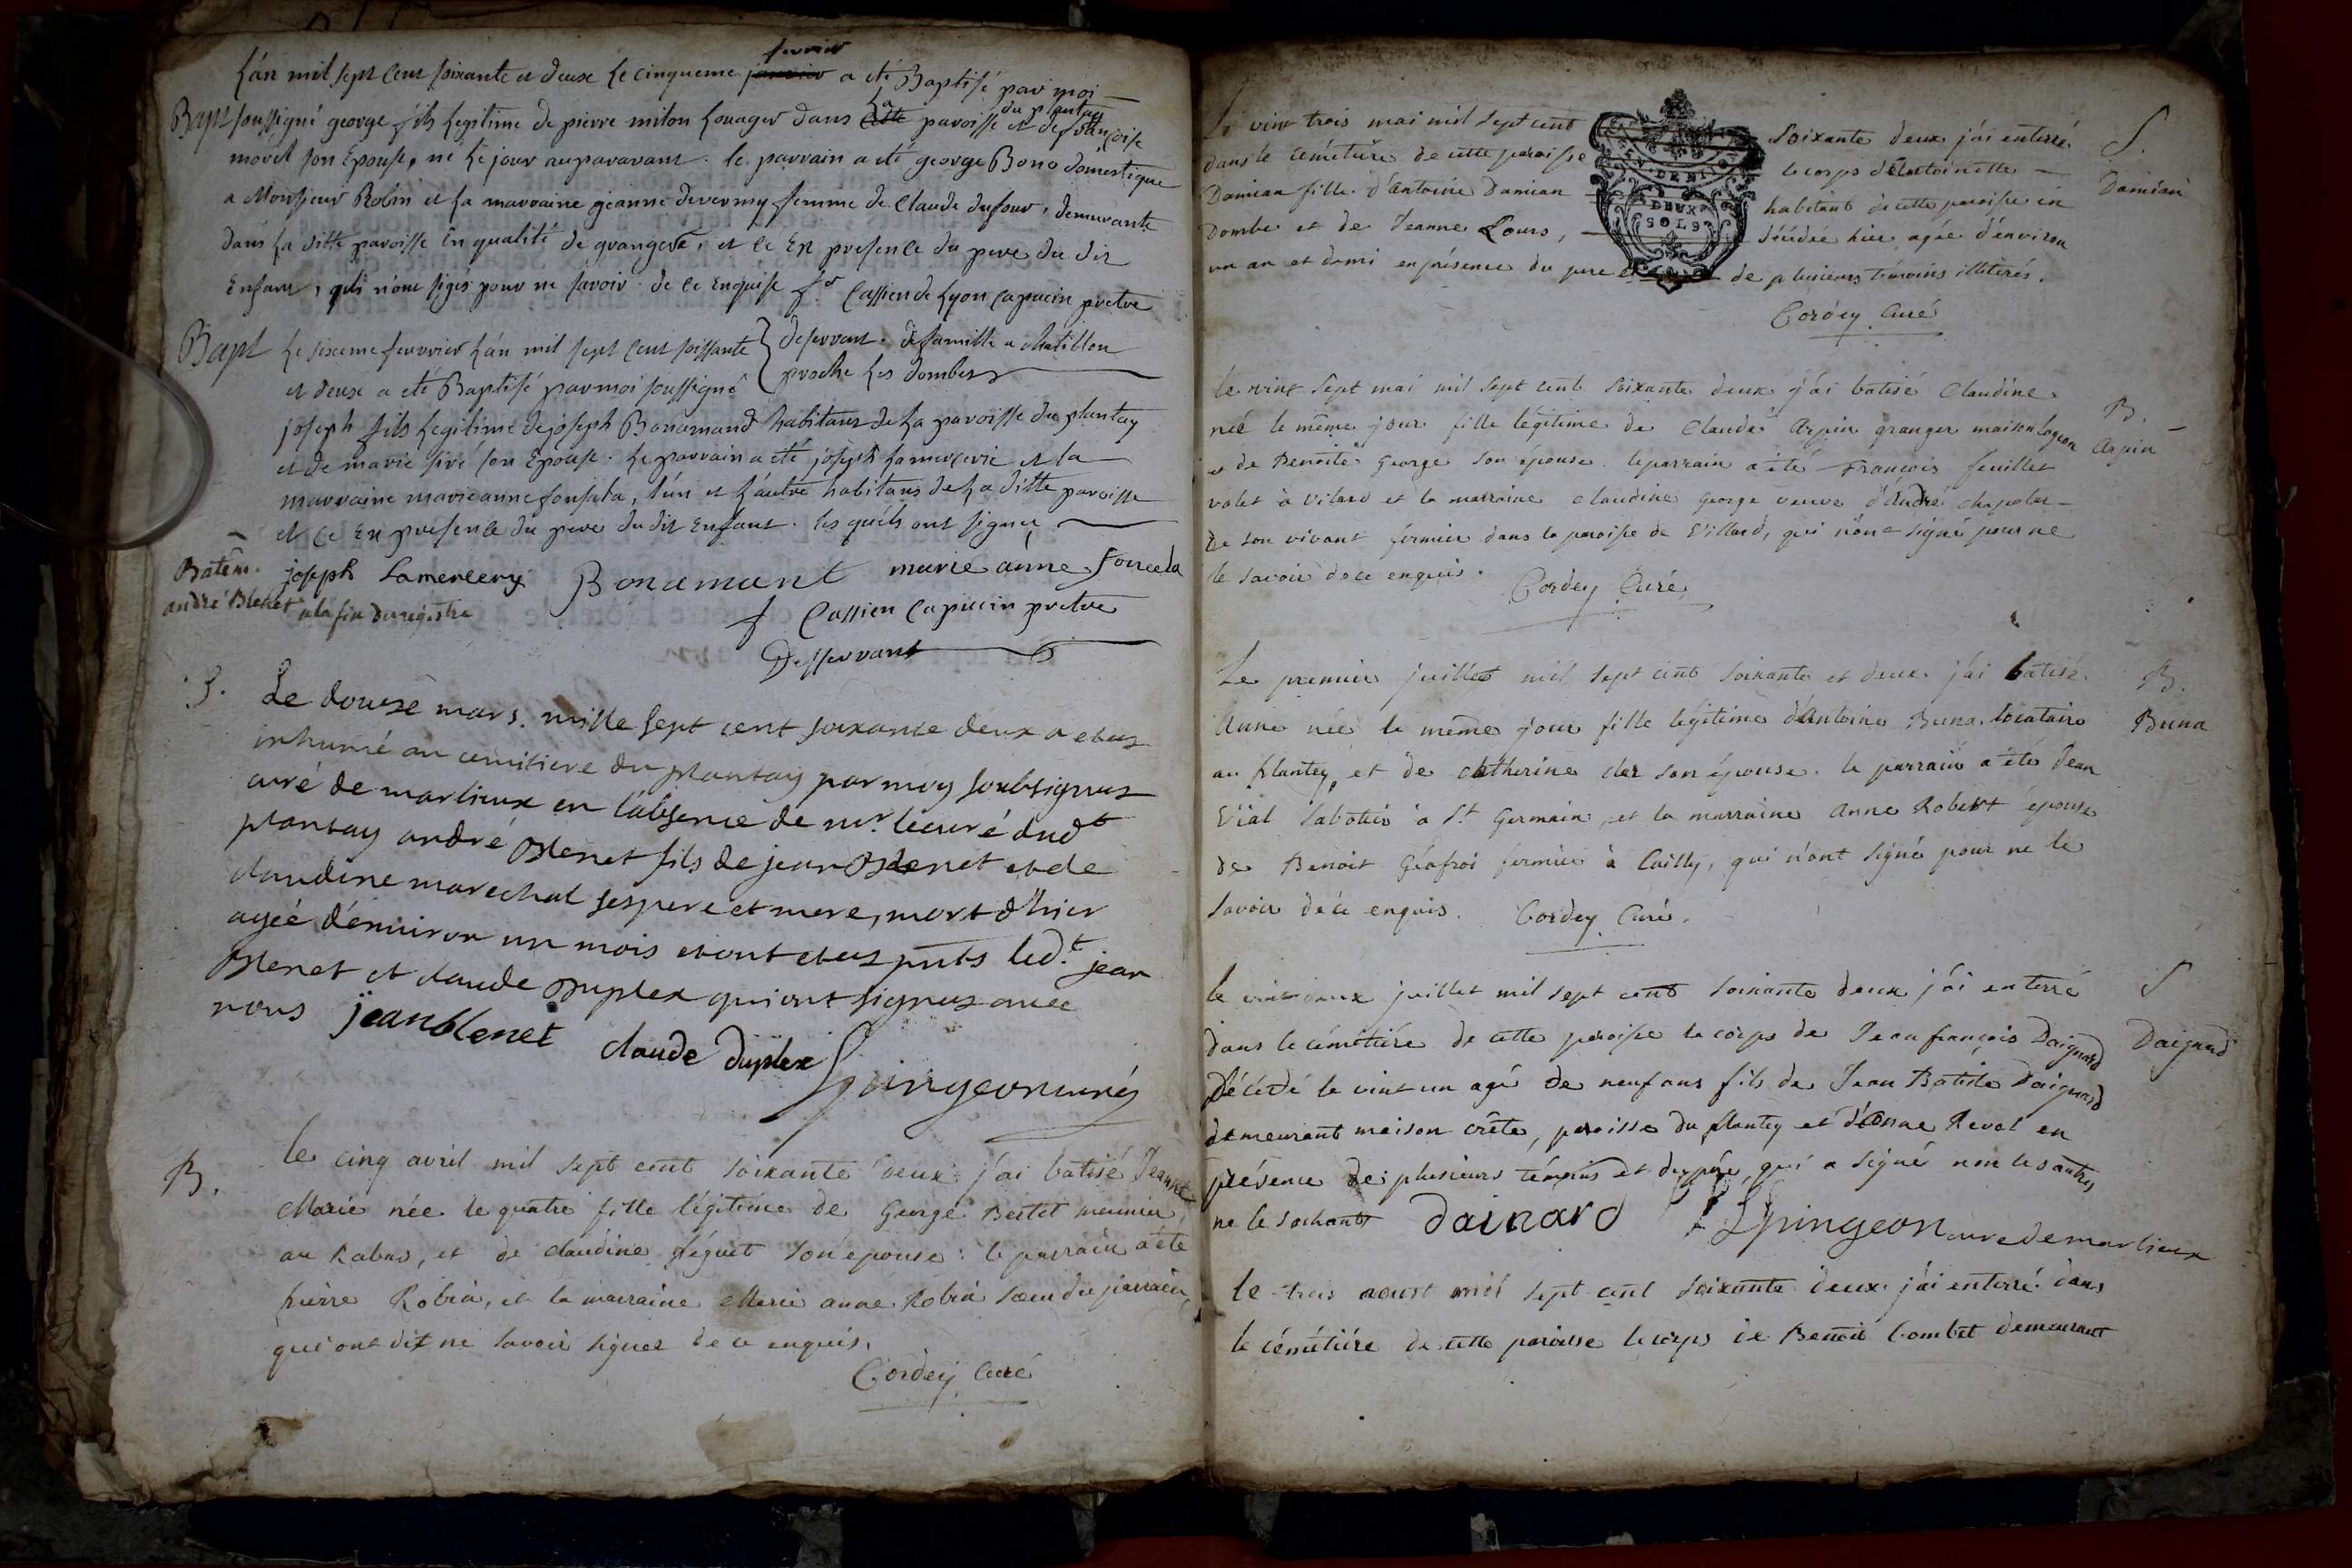 fevrier
L'an mil sept Cent soixante et deux Le cinqueme janvier a eté Baptisé par moi
Bapt soussigné george fils Legitime de pierre miton Louager dans cette La paroisse du plantay et de françoise
morel son Epouse, né Le jour auparavant. le parrain a eté george Bono domestique
a Monsieur Robin et La marraine jeanne devermy femme de Claude dufour, demeurante
dans La ditte paroisse En qualité de grangere, et ce En presence du pere du dit
Enfant, qui n'ont signés pour ne savoir de ce Enquise fr Cassien de Lyon Capucin pretre
desservant. de famille a chatillon
proche Les dombes
Bapt Le sixeme fevrrier L'an mil sept Cent soissante
et deux a eté Baptisé par moi soussigné
joseph fils Legitime de joseph Bonamand habitant de La paroisse du plantay
et de marie siré son Epouse. Le parrain a eté joseph Lamercerie et la
marraine marie anne fonsela, l'un et L'autre habitans de La ditte paroisse
et ce En presence du pere du dit Enfant. les quels ont signer
Batêm. joseph Lamercery Bonamant marie anne fonsela
andré Blenet a la fin du registre
f Cassien Capucin pretre
Desservant
S. Le douze mars mille sept cent soixante deux a etez
inhumé au cemitiere du plantay par moy soubsignez
curé de marlieux en l'absence de mr. le curé dudt
plantay andré Blenet fils de jean Blenet et de
claudine marechal ses pere et mere, mort d'hier
agée d'environ un mois et ont etez pnts led.t jean
Blenet et claude Duplex qui ont signez avec
nous jean blenet claude duplex
Spingeon curéz
B. Le cinq avril mil sept cent soixante deux j'ai batisé Jeanne
Marie née le quatre fille légitime de George Bertet meunier
au Rabat, et de claudine séguet son epouse: le parrain a été
pierre Robin, et la marraine Marie anne Robin soeur du parrain,
qui ont dit ne savoir signer de ce enquis.
Cordey Curé
GEN. DE
DEUX
SOLS
Le vint trois mai mil sept cent soixante deux j'ai enterré S.
dans le cémétière de cette paroisse le corps d'Antoinette Damian
Damian fille d'Antoine Damian habitant de cette paroisse en
Dombe et de Jeanne Lours, décédée hier agée d'environ
un an et demi en présence du pere et de plusieurs témoins illitérés.
Cordey Curé
le vint sept mai mil sept cent soixante deux j'ai batisé Claudine B.
née le même jour fille légitime de Claude Arpin granger maison Logeon Arpin
et de Benoite George son épouse. le parrain a été François feuillet
valet à Vilard et la marraine claudine George veuve d'André chapelas
de son vivant férmier dans la paroisse de Villard, qui n'ont signé pour ne
le savoir de ce enquis. Cordey Curé
Le premier juillet mil sept cent soixante et deux j'ai batisé B.
Anne née le même jour fille légitime d'Antoine Buna locataire Buna
au plantey, et de Catherine clez son épouse. le parrain a été Jean
Vial sabotier à St Germain, et la marraine Anne Robert épouse
de Benoit Géofroi fermier à Cailly, qui n'ont signé pour ne le
savoir de ce enquis. Cordey Curé.
le vint deux juillet mil sept cent soixante deux j'ai enterré S
dans le cémétière de cette paroisse le corps de Jean françois Daignard Daignard
Décédé le vint un agé de neuf ans fils de Jean Batiste Daignard
demeurant maison crête, paroisse du plantey et d'Anne Revol en
présence de plusieurs témoins et du père, qui a signé non les autres
ne le sachant dainard Spingeon curé de marlieux
le trois aoust mil sept cent soixante deux j'ai enterré dans
le cémétière de cette paroisse le corps de Benoit Combet demeurant